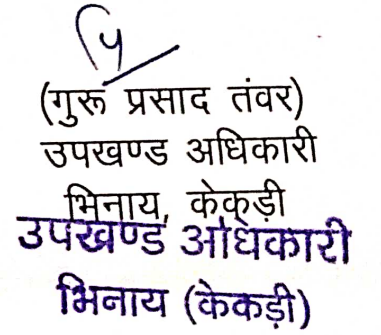 (गुरू प्रसाद तंवर)
उपखण्ड अधिकारी
भिनाय, केकड़ी
उपखण्ड अधिकारी
भिनाय (केकड़ी)